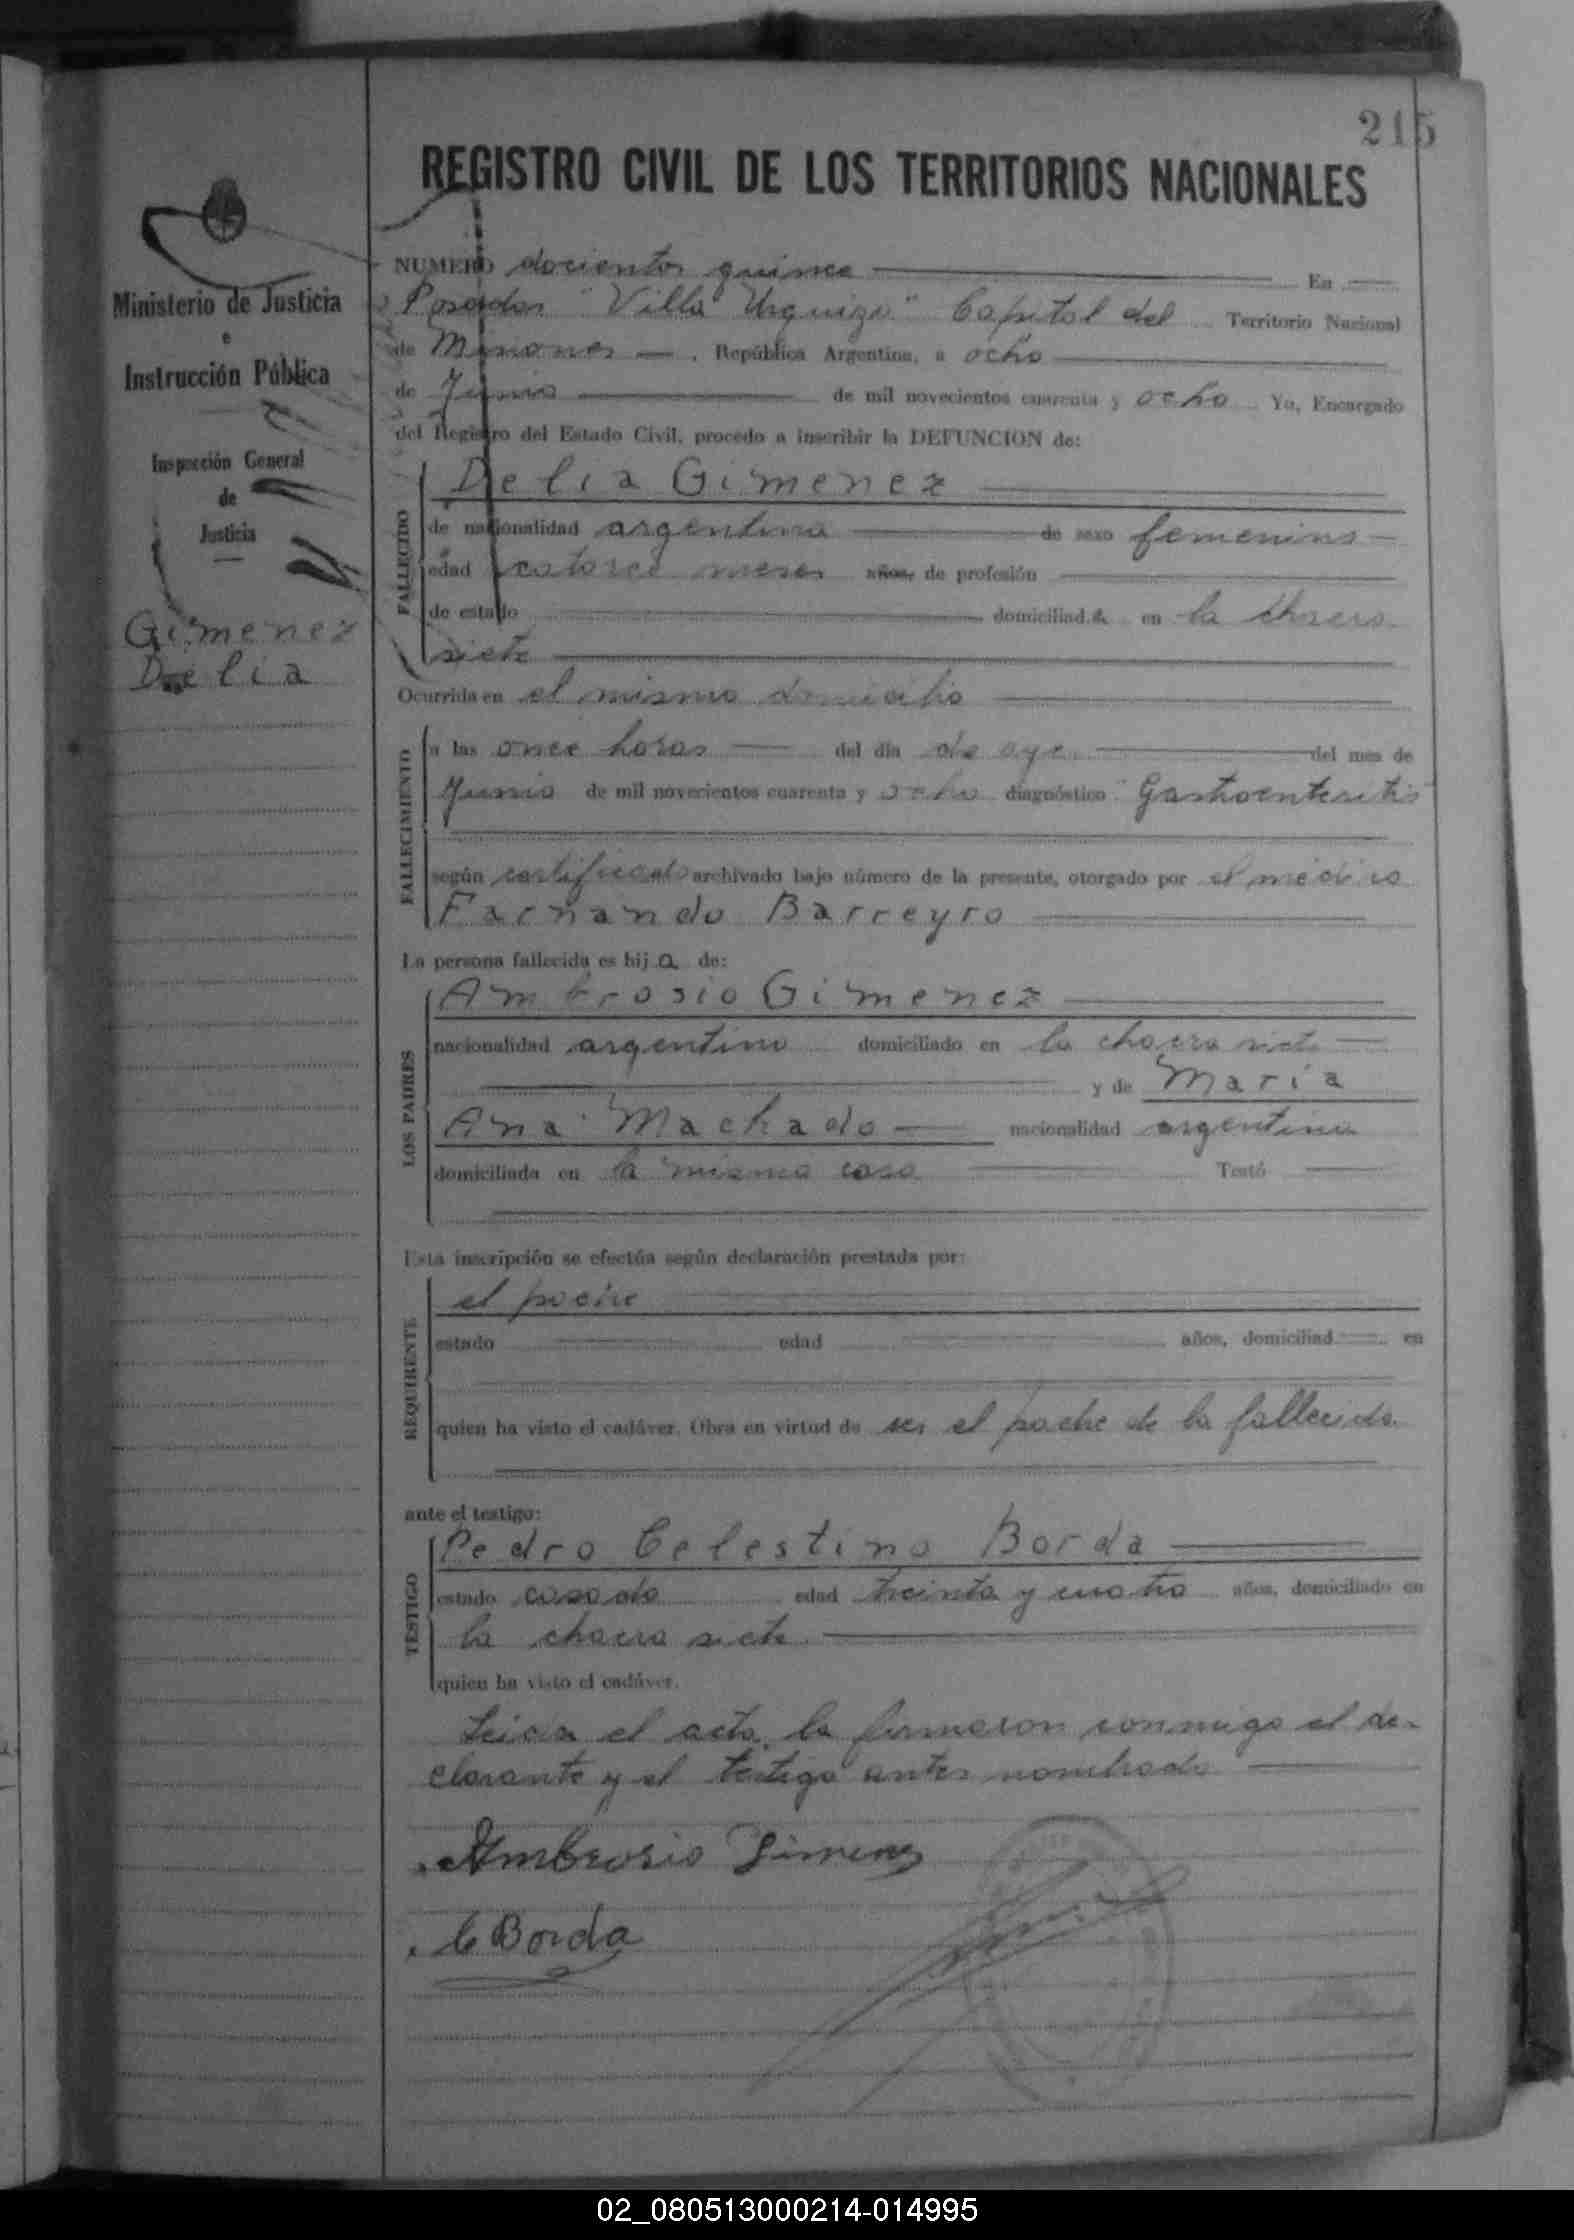 215
REGISTRO CIVIL DE LOS TERRITORIOS NACIONALES
Ministerio de Justicia
e
Instrucción Pública
Inspección General
de
Justicia
Gimenez
Delia
NUMERO docientos quince En
Posadas "Villa Urquiza" Capital del Territorio Nacional
de Misiones, República Argentina, a ocho
de Junio de mil novecientos cuarenta y ocho Yo, Encargado
del Registro del Estado Civil, procedo a inscribir la DEFUNCION de:
FALLECIDO
Delia Gimenez
de nacionalidad argentina de sexo femenino
edad catorce meses años, de profesión
de estado domiciliada en la chacra
siete
Ocurrida en el mismo domicilio
FALLECIMIENTO
a las once horas del día de aye del mes de
Junio de mil novecientos cuarenta y ocho diagnóstico "Gastroenteritis"
según certificado archivado bajo número de la presente, otorgado por el médico
Fernando Barreyro
La persona fallecida es hija de:
LOS PADRES
Ambrosio Gimenez
nacionalidad argentino domiciliado en la chacra siete
y de María
Ana Machado nacionalidad argentina
domiciliada en la misma casa Testó
Esta inscripción se efectúa según declaración prestada por:
REQUIRENTE
el padre
estado edad años, domiciliad en
quien ha visto el cadáver. Obra en virtud de ser el padre de la fallecida.
ante el testigo:
TESTIGO
Pedro Celestino Borda
estado casado edad treinta y cuatro años, domiciliado en
la chacra siete
quien ha visto el cadáver.
Leida el acta, la firmaron conmigo el de-
clarante y el testigo antes nombrado
Ambrosio Jimenez
C Borda
02_080513000214-014995